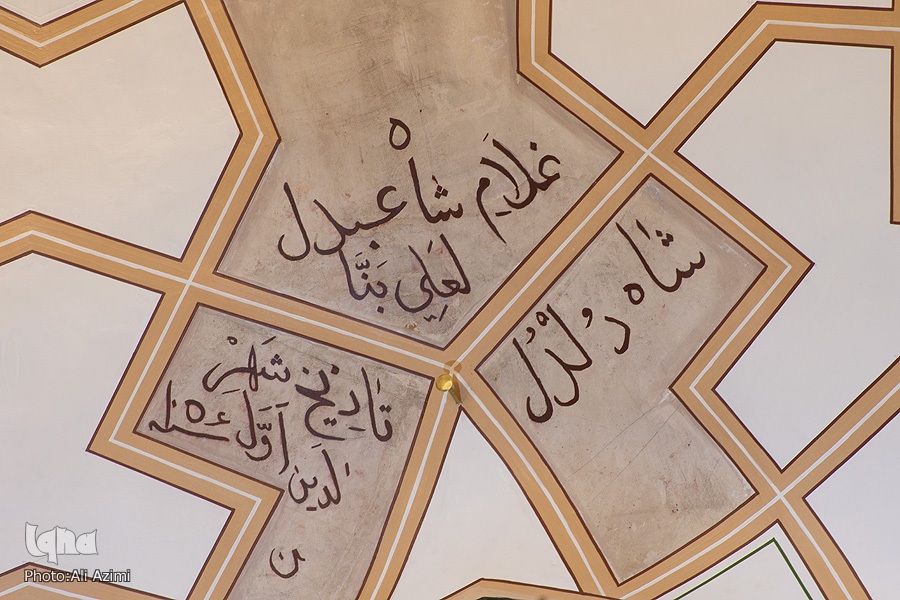 غلام شاه عبدل
لعلی بنا
شاه دلدل
تاریخ شهر
اول سنه
الدین
Iqna
Photo:Ali Azimi